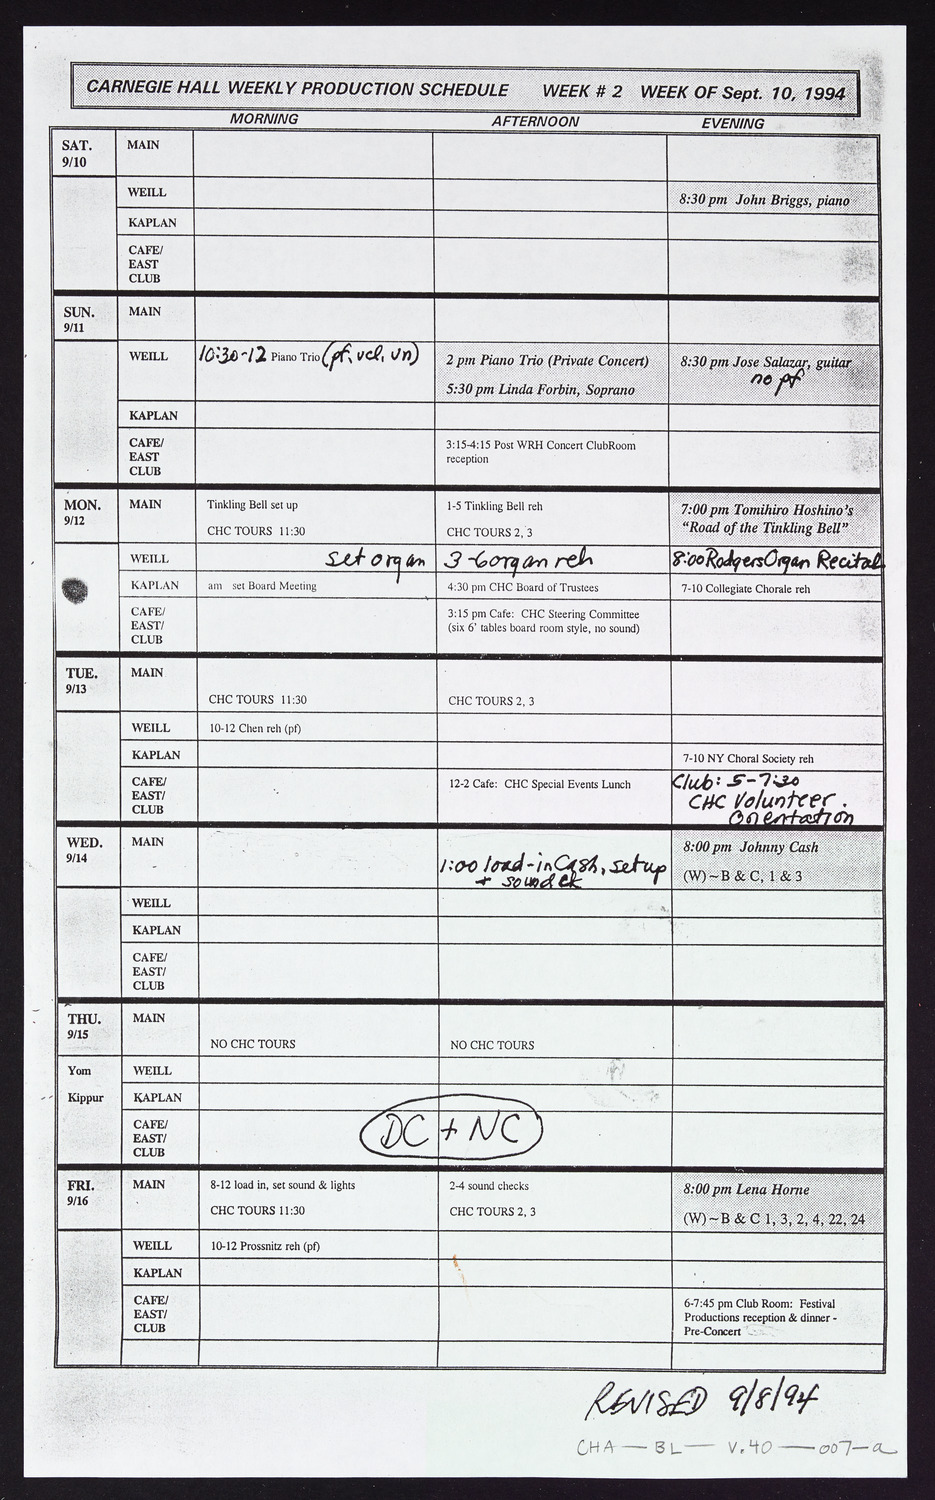 CARNEGIE HALL WEEKLY PRODUCTION SCHEDULE WEEK # 2 WEEK OF Sept. 10, 1994
MORNING AFTERNOON EVENING
SAT.
9/10
MAIN
WEILL
8:30 pm John Briggs, piano
KAPLAN
CAFE/
EAST
CLUB
SUN.
9/11
MAIN
WEILL
10:30-12 Piano Trio (pf, vcl, vn)
2 pm Piano Trio (Private Concert)
5:30 pm Linda Forbin, Soprano
8:30 pm Jose Salazar, guitar
no pf
KAPLAN
CAFE/
EAST
CLUB
3:15-4:15 Post WRH Concert ClubRoom
reception
MON.
9/12
MAIN
Tinkling Bell set up
CHC TOURS 11:30
1-5 Tinkling Bell reh
CHC TOURS 2, 3
7:00 pm Tomihiro Hoshino's
"Road of the Tinkling Bell"
WEILL
set organ
3-6 organ reh
8:00 Rodgers Organ Recital
KAPLAN
am set Board Meeting
4:30 pm CHC Board of Trustees
7-10 Collegiate Chorale reh
CAFE/
EAST/
CLUB
3:15 pm Cafe: CHC Steering Committee
(six 6' tables board room style, no sound)
TUE.
9/13
MAIN
CHC TOURS 11:30
CHC TOURS 2, 3
WEILL
10-12 Chen reh (pf)
KAPLAN
7-10 NY Choral Society reh
CAFE/
EAST/
CLUB
12-2 Cafe: CHC Special Events Lunch
Club: 5-7:30
CHC Volunteer
Orientation
WED.
9/14
MAIN
1:00 load-in Cash, set up
+ sound ck
8:00 pm Johnny Cash
(W)~B & C, 1 & 3
WEILL
KAPLAN
CAFE/
EAST/
CLUB
THU.
9/15
MAIN
NO CHC TOURS
NO CHC TOURS
Yom
Kippur
WEILL
KAPLAN
CAFE/
EAST/
CLUB
DC + NC
FRI.
9/16
MAIN
8-12 load in, set sound & lights
CHC TOURS 11:30
2-4 sound checks
CHC TOURS 2, 3
8:00 pm Lena Horne
(W)~B & C 1, 3, 2, 4, 22, 24
WEILL
10-12 Prossnitz reh (pf)
KAPLAN
CAFE/
EAST/
CLUB
6-7:45 pm Club Room: Festival
Productions reception & dinner -
Pre-Concert
REVISED 9/8/94
CHA — BL — V.40 — 007-a